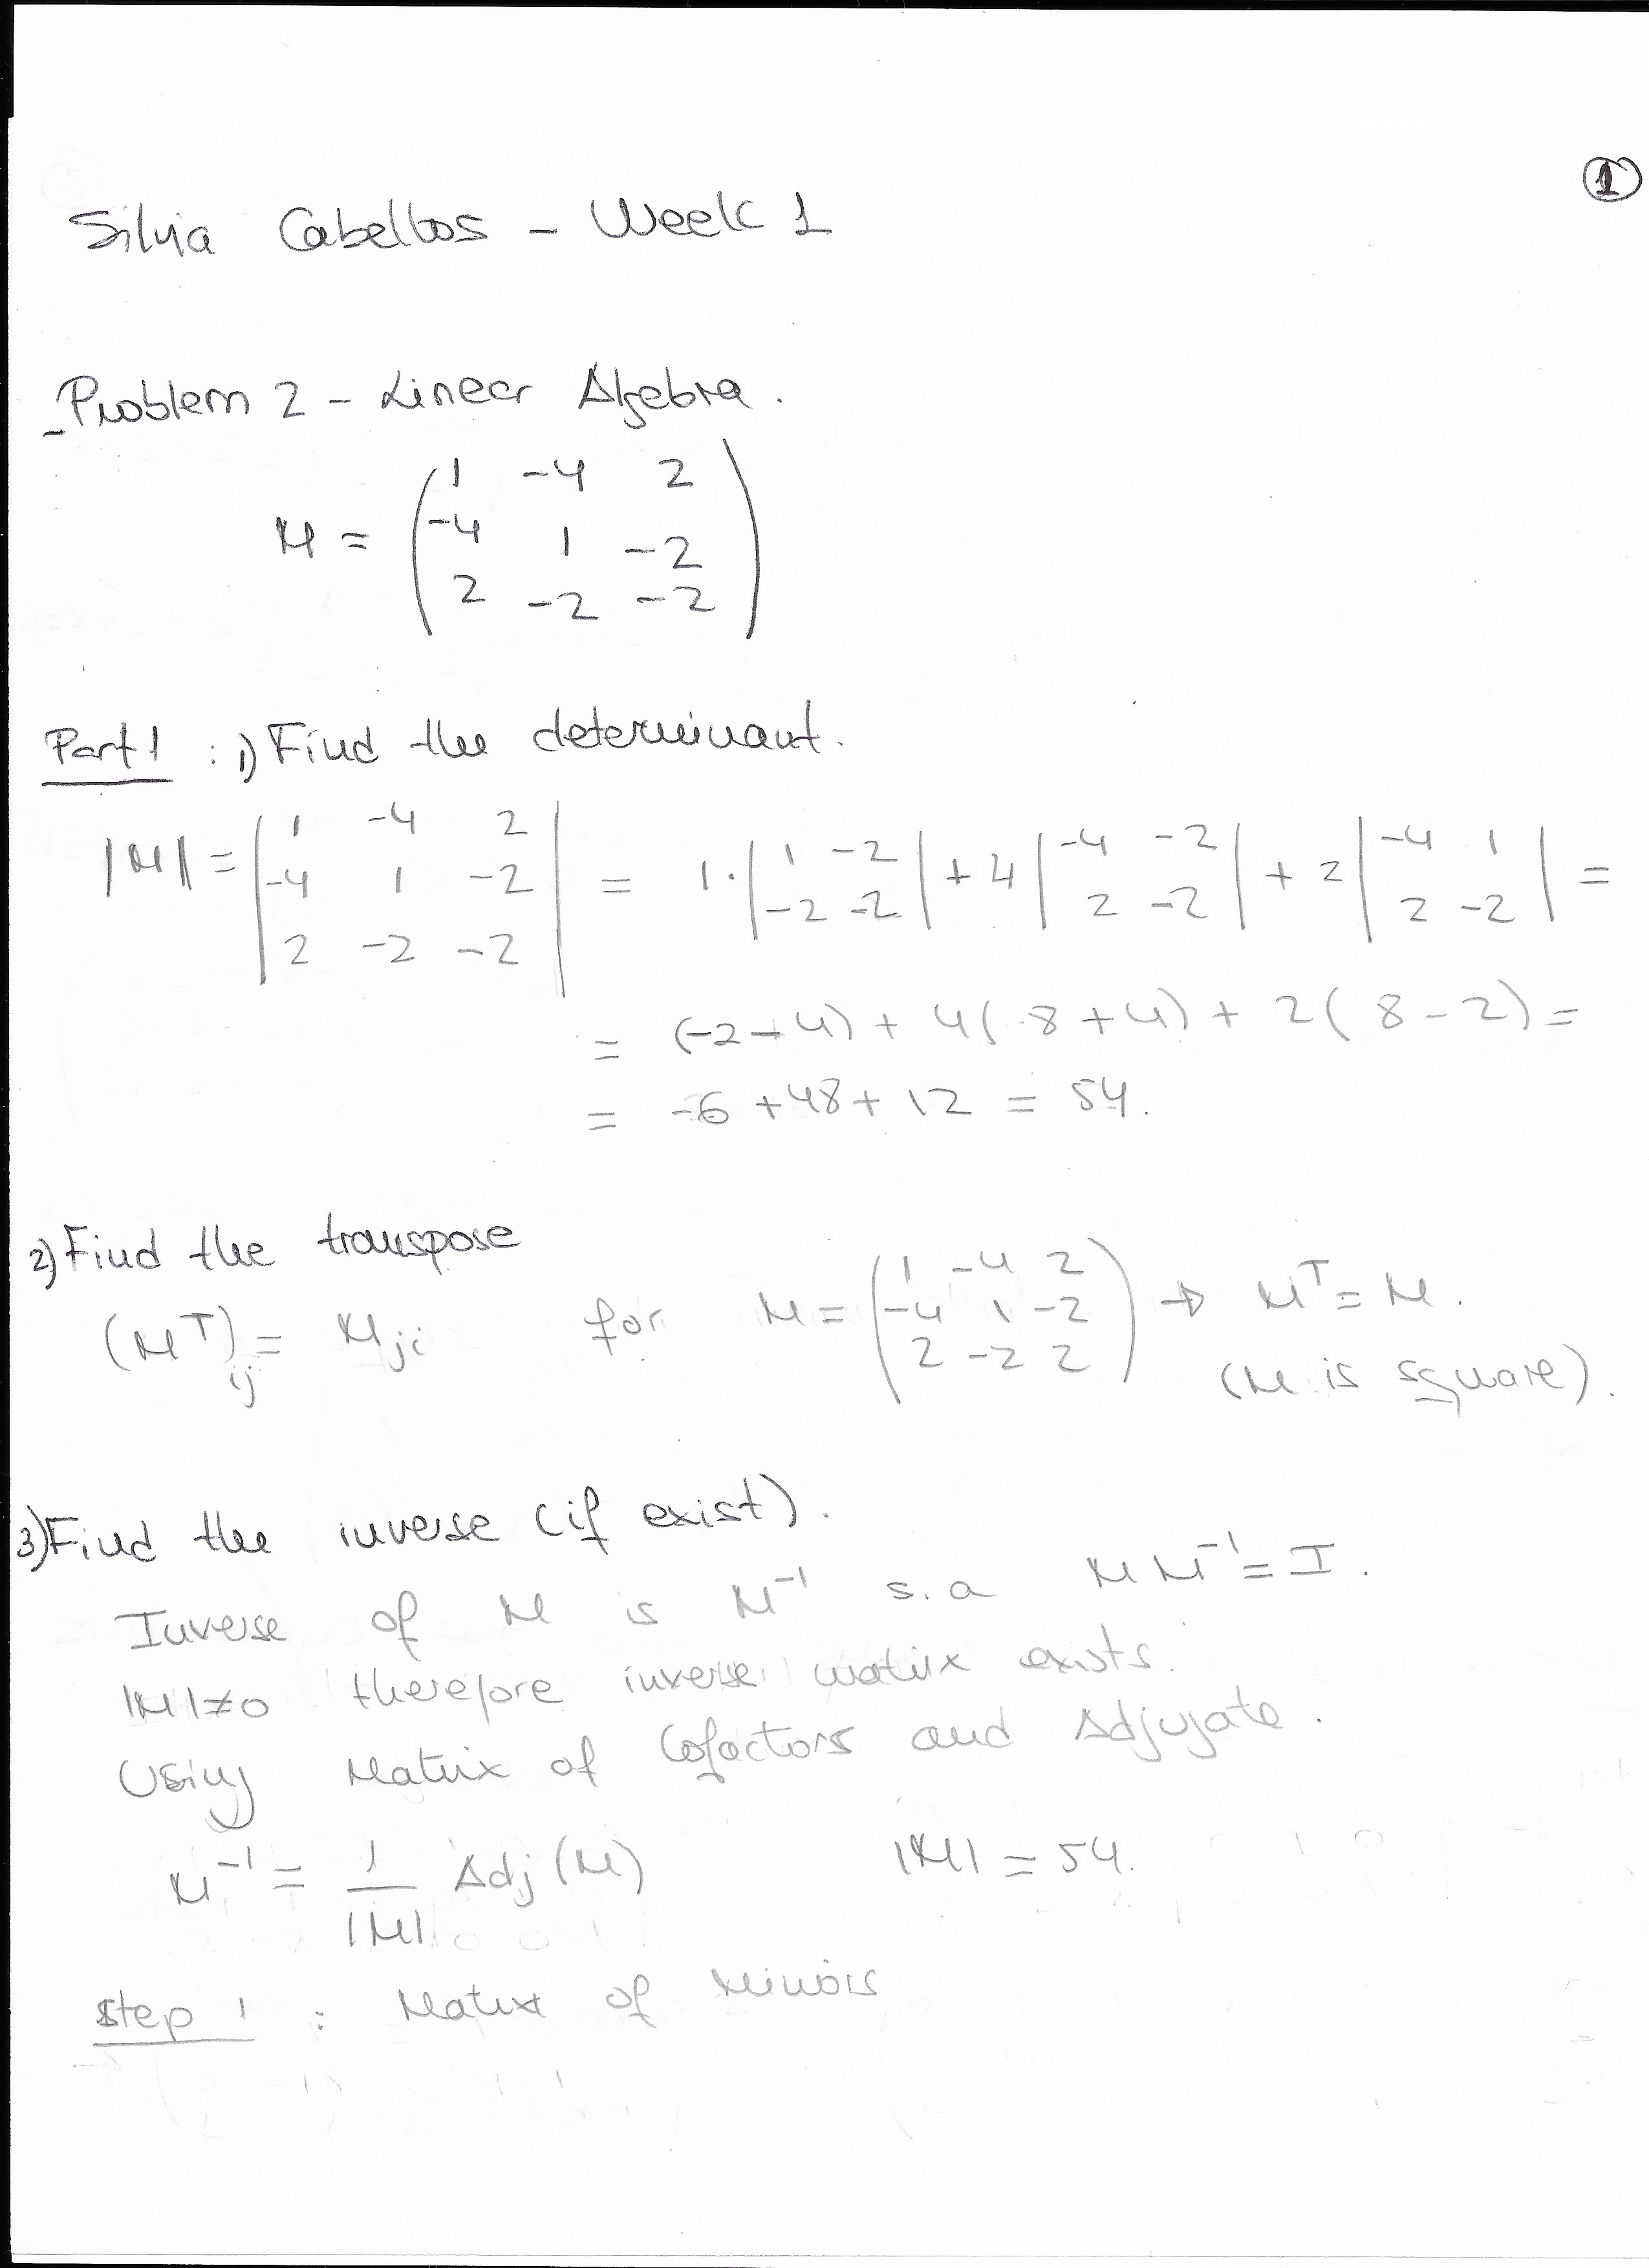 ①
Silvia Cabellos - Week 1
Problem 2 - Linear Algebra.
M = ( 1 -4 2
-4 1 -2
2 -2 -2 )
Part 1 : 1) Find the determinant.
|M| = | 1 -4 2 | = 1·| 1 -2 | + 4 | -4 -2 | + 2 | -4 1 | =
| -4 1 -2 | | -2 -2 | | 2 -2 | | 2 -2 |
| 2 -2 -2 |
= (-2-4) + 4( 8+4) + 2( 8-2) =
= -6 +48+ 12 = 54.
2) Find the transpose
(M^T)_ij = M_ji for M = ( 1 -4 2 / -4 1 -2 / 2 -2 2 ) → M^T = M.
(M is square).
3) Find the inverse (if exist).
Inverse of M is M^-1 s.a M M^-1 = I.
|M|≠0 therefore inverse matrix exists.
Using Matrix of Cofactors and Adjugate.
M^-1 = 1/|M| Adj (M) |M| = 54.
Step 1 : Matrix of Minors